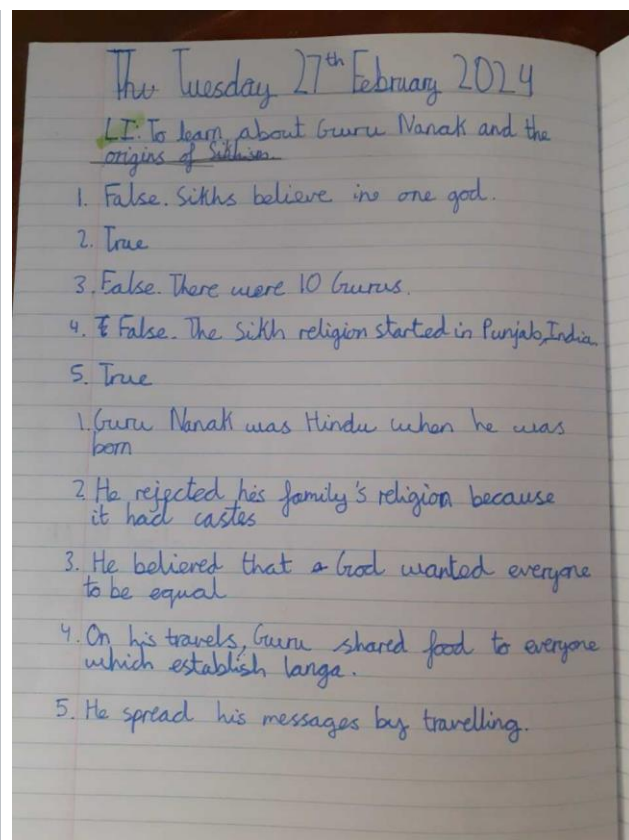 Thu Tuesday 27th February 2024
LI: To learn about Guru Nanak and the
origins of Sikhism.
1. False. Sikhs believe in one god.
2. True
3. False. There were 10 Gurus.
4. False. The Sikh religion started in Punjab, India.
5. True
1. Guru Nanak was Hindu when he was
born
2. He rejected his family's religion because
it had castes
3. He believed that a God wanted everyone
to be equal
4. On his travels, Guru shared food to everyone
which establish langa.
5. He spread his messages by travelling.